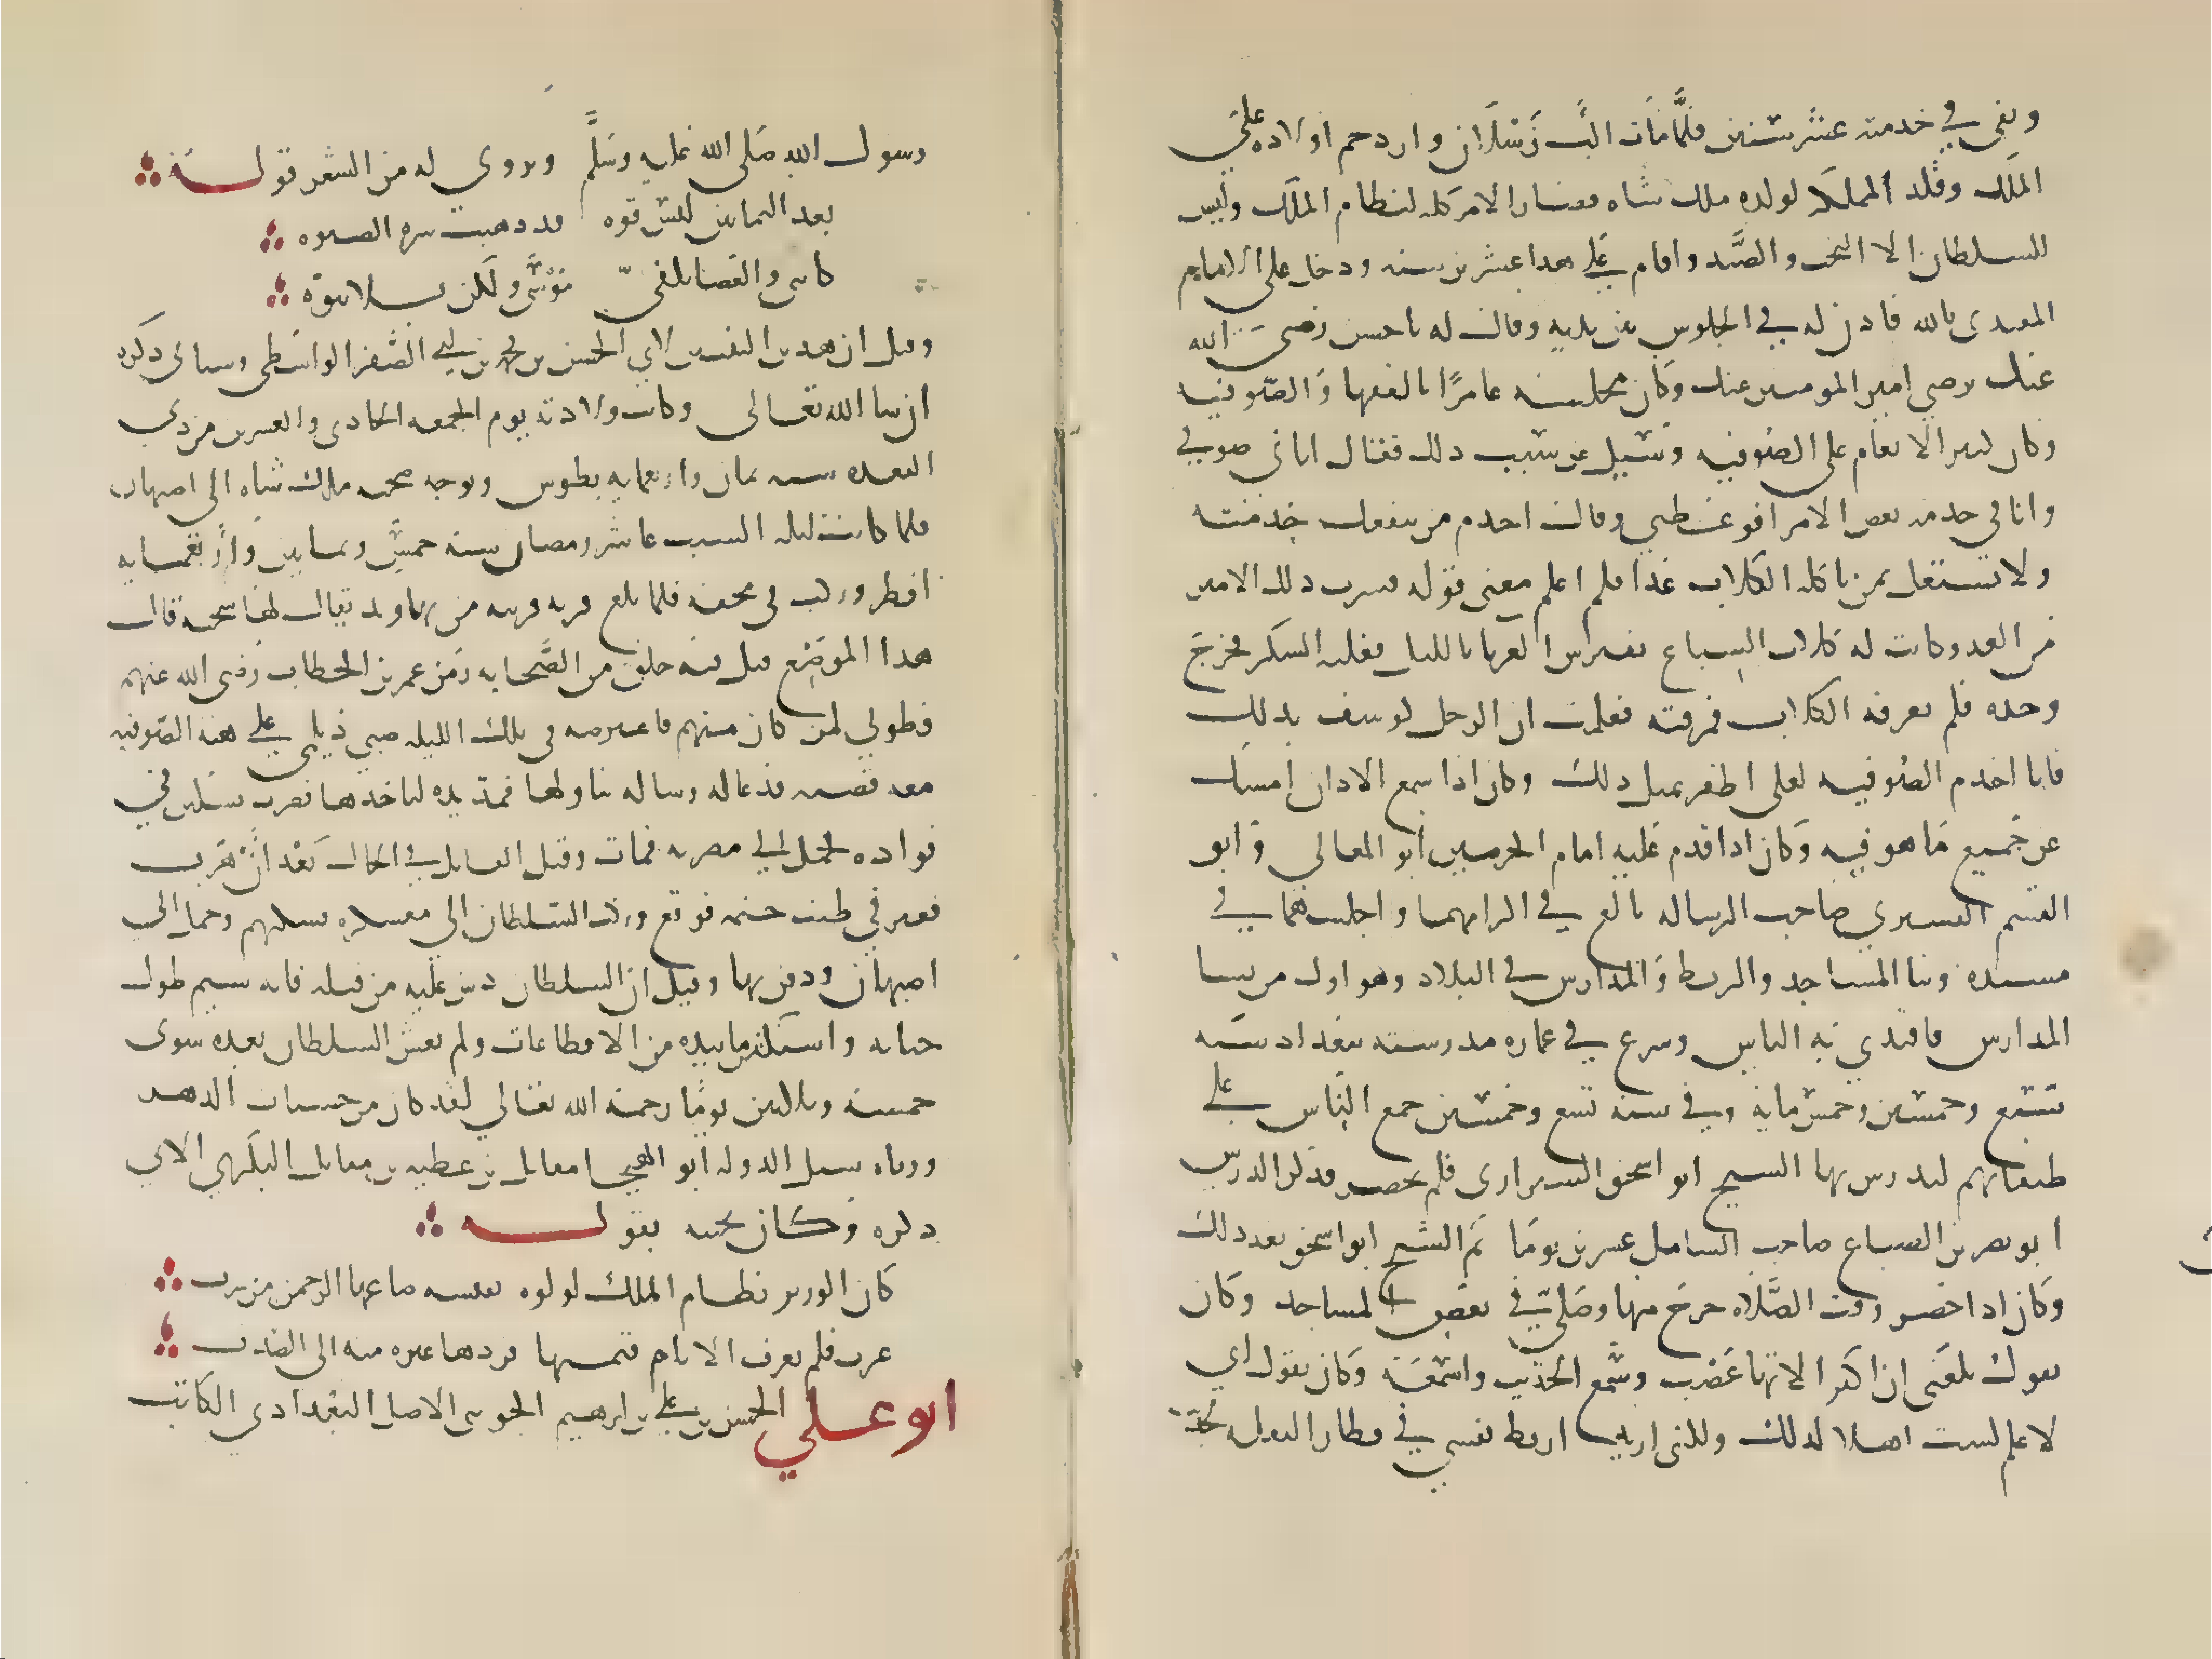 وبقي في خدمته عشر سنين فلما مات الب رسلان وازدحم اولاده على
الملك وطد المملكة لولده ملك شاه فصار الامر كله لنظام الملك وليس
للسلطان الا التخت والصيد واقام على هذا عشرين سنه ودخل على الامام
المقتدى بالله فاذن له في الجلوس بين يديه وقال له يا حسن رضي الله
عنك برضى امير المومنين عنك وكان مجلسه عامرا بالفقها والصوفيه
وكان كثير الانعام على الصوفيه وسيل عن سبب ذلك فقال اتانى صوفي
وانا في خدمه بعض الامرا فوعظني وقال اخدم من تنفعك خدمته
ولا تشتغل بمن تاكله الكلاب غدا فلم اعلم معنى قوله فشرب ذلك الامير
من الغد وكانت له كلاب كالسباع تفترس الغربا بالليل فغلبه السكر فخرج
وحده فلم تعرفه الكلاب فمزقته فعلمت ان الرجل كوشف بذلك
فانا اخدم الصوفيه لعلي اظفر بمثل ذلك وكان اذا سمع الاذان امسك
عن جميع ما هو فيه وكان اذا قدم عليه امام الحرمين ابو المعالي وابو
القسم القشيري صاحب الرساله بالغ في اكرامهما واجلسهما في
مسنده وبنا المساجد والربط والمدارس في البلاد وهو اول من بنا
المدارس فاقتدي به الناس وشرع في عماره مدرسته ببغداد سنه
سبع وخمسين وخمس مايه وفي سنه تسع وخمسين جمع الناس على
طبقاتهم ليدرس بها الشيخ ابو اسحق الشيرازى فلم يحضر فذكر الدرس
ابو نصر بن الصباغ صاحب الشامل عشرين يوما ثم الشيخ ابو اسحق بعد ذلك
وكان اذا حضر وقت الصلاه خرج منها وصلى في بعض المساجد وكان
يقول بلغني ان اكثر الاتها غصب وسمع الحديث واسمعه وكان يقول اني
لاعلم لست اهلا لذلك ولكني اريد اربط نفسي في قطار النقله لحديث
رسول الله صلى الله عليه وسلم ويروي له من الشعر قوله
بعد الثمانين ليس قوه قد ذهبت شره الصبوه
كانني والعصا بكفي موسى ولكن بلا نبوه
وقيل ان هذين البيتين لابي الحسن بن محمد بن ابي الصقر الواسطي وسياتى ذكره
ان شا الله تعالى وكانت ولادته يوم الجمعه الحادى والعشرين من ذي
القعده سنه ثمان واربعمايه بطوس وتوجه صحبه ملك شاه الى اصبهان
فلما كانت ليله السبت عاشر رمضان سنه خمس وثمانين واربعمايه
افطر وركب في محفه فلما بلغ قريه قريبه من نهاوند يقال لها سحنه قال
هذا الموضع قتل فيه خلق من الصحابه زمن عمر بن الخطاب رضى الله عنهم
فطوبي لمن كان منهم فاعترضه في تلك الليله صبي ديلمي على هيه الصوفيه
معه قصه فدعا له وساله تناولها فمد يده لياخذها فضربه بسكين في
فواده فحمل الي مضربه فمات وقتل القاتل في الحال بعد ان هرب
فعثر في طنب خيمه فوقع وركب السلطان الي معسكره فسكنهم وحمل الي
اصبهان ودفن بها وقيل ان السلطان دس عليه من قتله فانه سيم طول
حياته واستكثر ما بيده من الاقطاعات ولم يعش السلطان بعده سوى
خمسه وثلاثين يوما رحمه الله تعالي لقد كان من حسنات الدهر
ورثاه شبل الدوله ابو الهيجا مقاتل بن عطيه بن مقاتل البكري الاتي
ذكره وكان ختنه بقوله
كان الوزير نظام الملك لولوه نفيسه صاغها الرحمن من شرف
عزت فلم تعرف الايام قيمتها فردها غيره منه الى الصدف
ابو علي الحسن بن علي بن ابرهيم الجويني الاصل البغدادي الكاتب